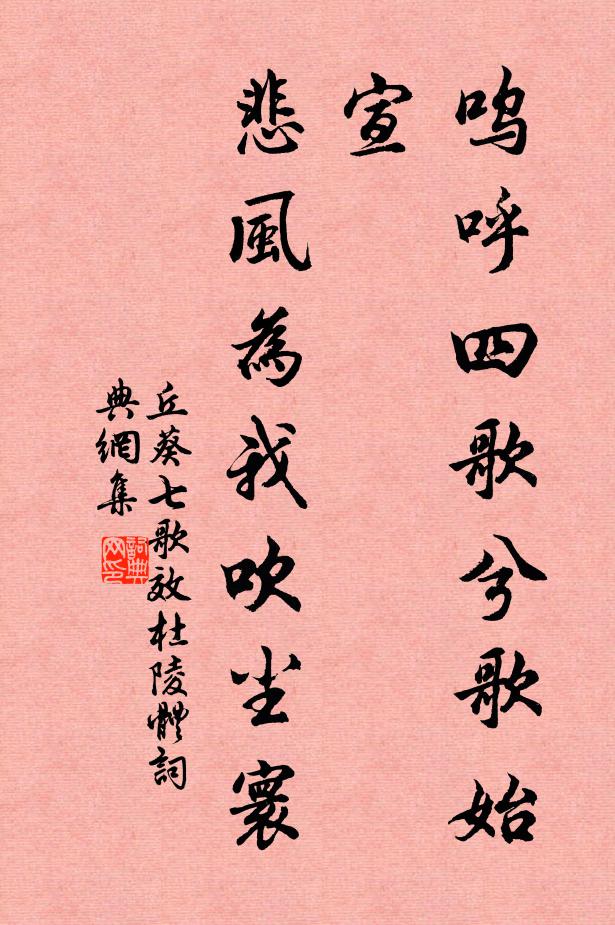 嗚呼四歌兮歌始
宣
悲風為我吹尘寰
丘葵七歌效杜陵體詞
典網集
詞典
网印